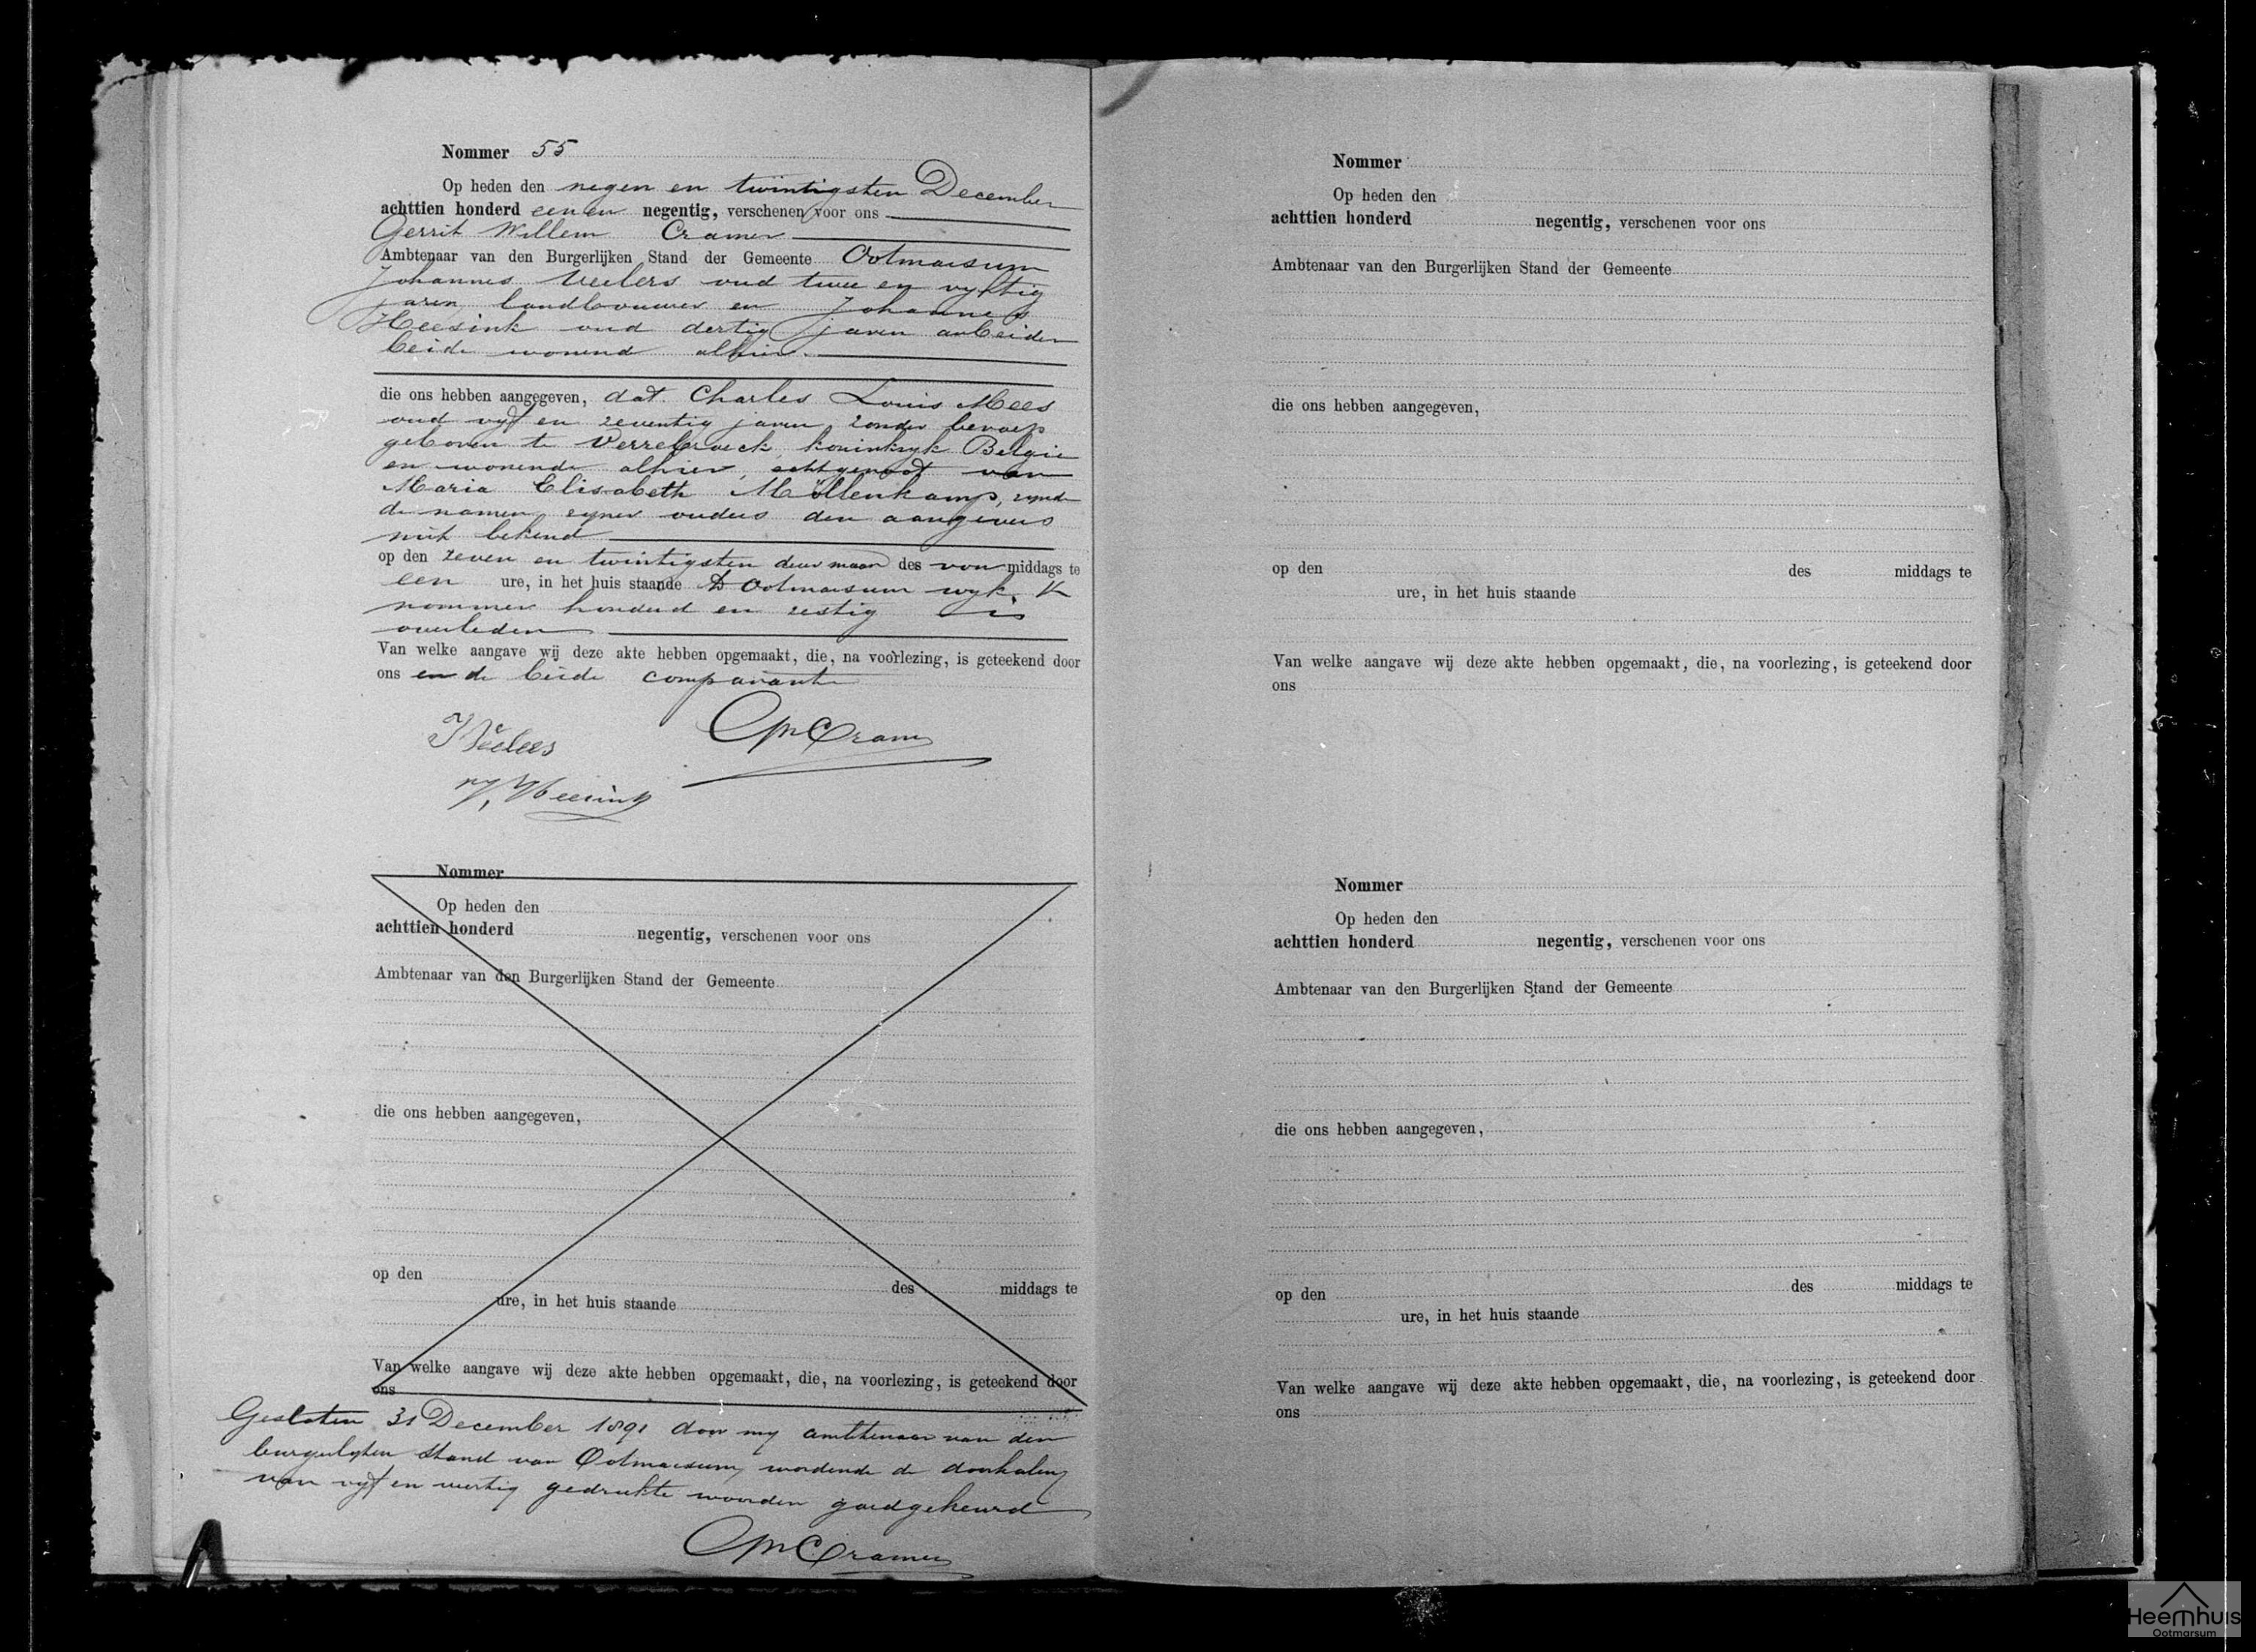 Nommer 55
Op heden den negen en twintigsten December
achttien honderd een en negentig, verschenen voor ons
Gerrit Willem Cramer
Ambtenaar van den Burgerlijken Stand der Gemeente Ootmarsum
Johannes Weelers oud twee en vyftig
jaren landbouwer en Johannes
Heesink oud dertig jaren arbeider
beide wonende alhier.
die ons hebben aangegeven, dat Charles Louis Mees
oud vyf en zeventig jaren, zonder beroep
geboren te Verrebroeck, koninkryk Belgie
en wonende alhier, echtgenoot van
Maria Elisabeth Möllenkamp, zynde
de namen zyner ouders den aangevers
niet bekend
op den zeven en twintigsten dezer maand des voor middags te
een ure, in het huis staande te Ootmarsum wyk
nommer honderd en zestig is
overleden
Van welke aangave wij deze akte hebben opgemaakt, die, na voorlezing, is geteekend door
ons en de beide comparanten
JWeelers GWCramer
J. Heesink
Nommer
Op heden den
achttien honderd negentig, verschenen voor ons
Ambtenaar van den Burgerlijken Stand der Gemeente
die ons hebben aangegeven,
op den des middags te
ure, in het huis staande
Van welke aangave wij deze akte hebben opgemaakt, die, na voorlezing, is geteekend door
ons
Gesloten 31 December 1891 door my ambtenaar van den
burgerlyken stand van Ootmarsum, wordende de doorhaling
van vyf en veertig gedrukte woorden goedgekeurd
GWCramer
Nommer
Op heden den
achttien honderd negentig, verschenen voor ons
Ambtenaar van den Burgerlijken Stand der Gemeente
die ons hebben aangegeven,
op den des middags te
ure, in het huis staande
Van welke aangave wij deze akte hebben opgemaakt, die, na voorlezing, is geteekend door
ons
Nommer
Op heden den
achttien honderd negentig, verschenen voor ons
Ambtenaar van den Burgerlijken Stand der Gemeente
die ons hebben aangegeven,
op den des middags te
ure, in het huis staande
Van welke aangave wij deze akte hebben opgemaakt, die, na voorlezing, is geteekend door
ons
Heemhuis
Ootmarsum